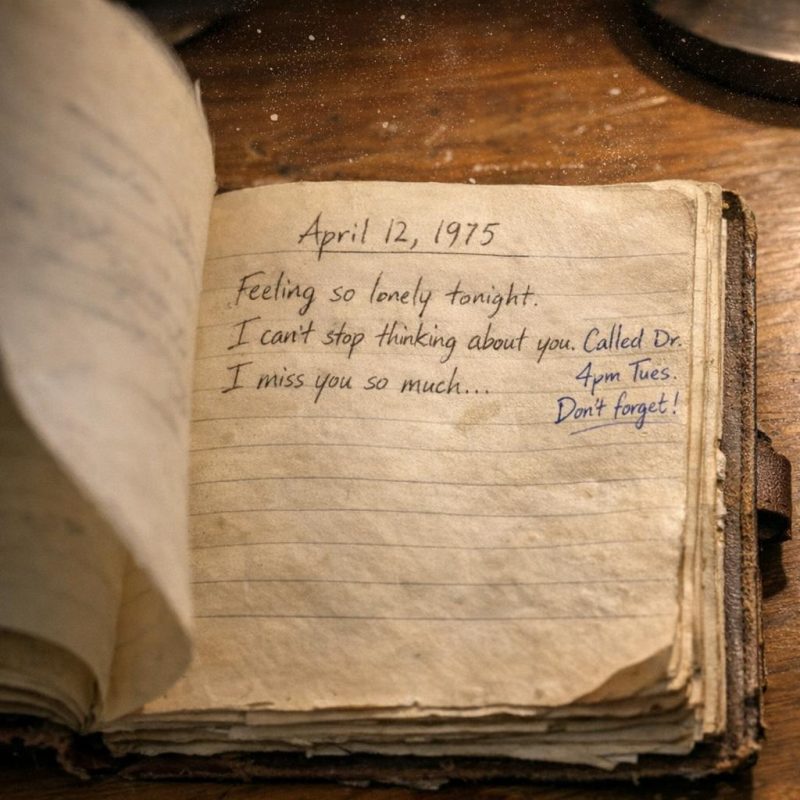 April 12, 1975
Feeling so lonely tonight.
I can't stop thinking about you.
I miss you so much...
Called Dr.
4pm Tues.
Don't forget!